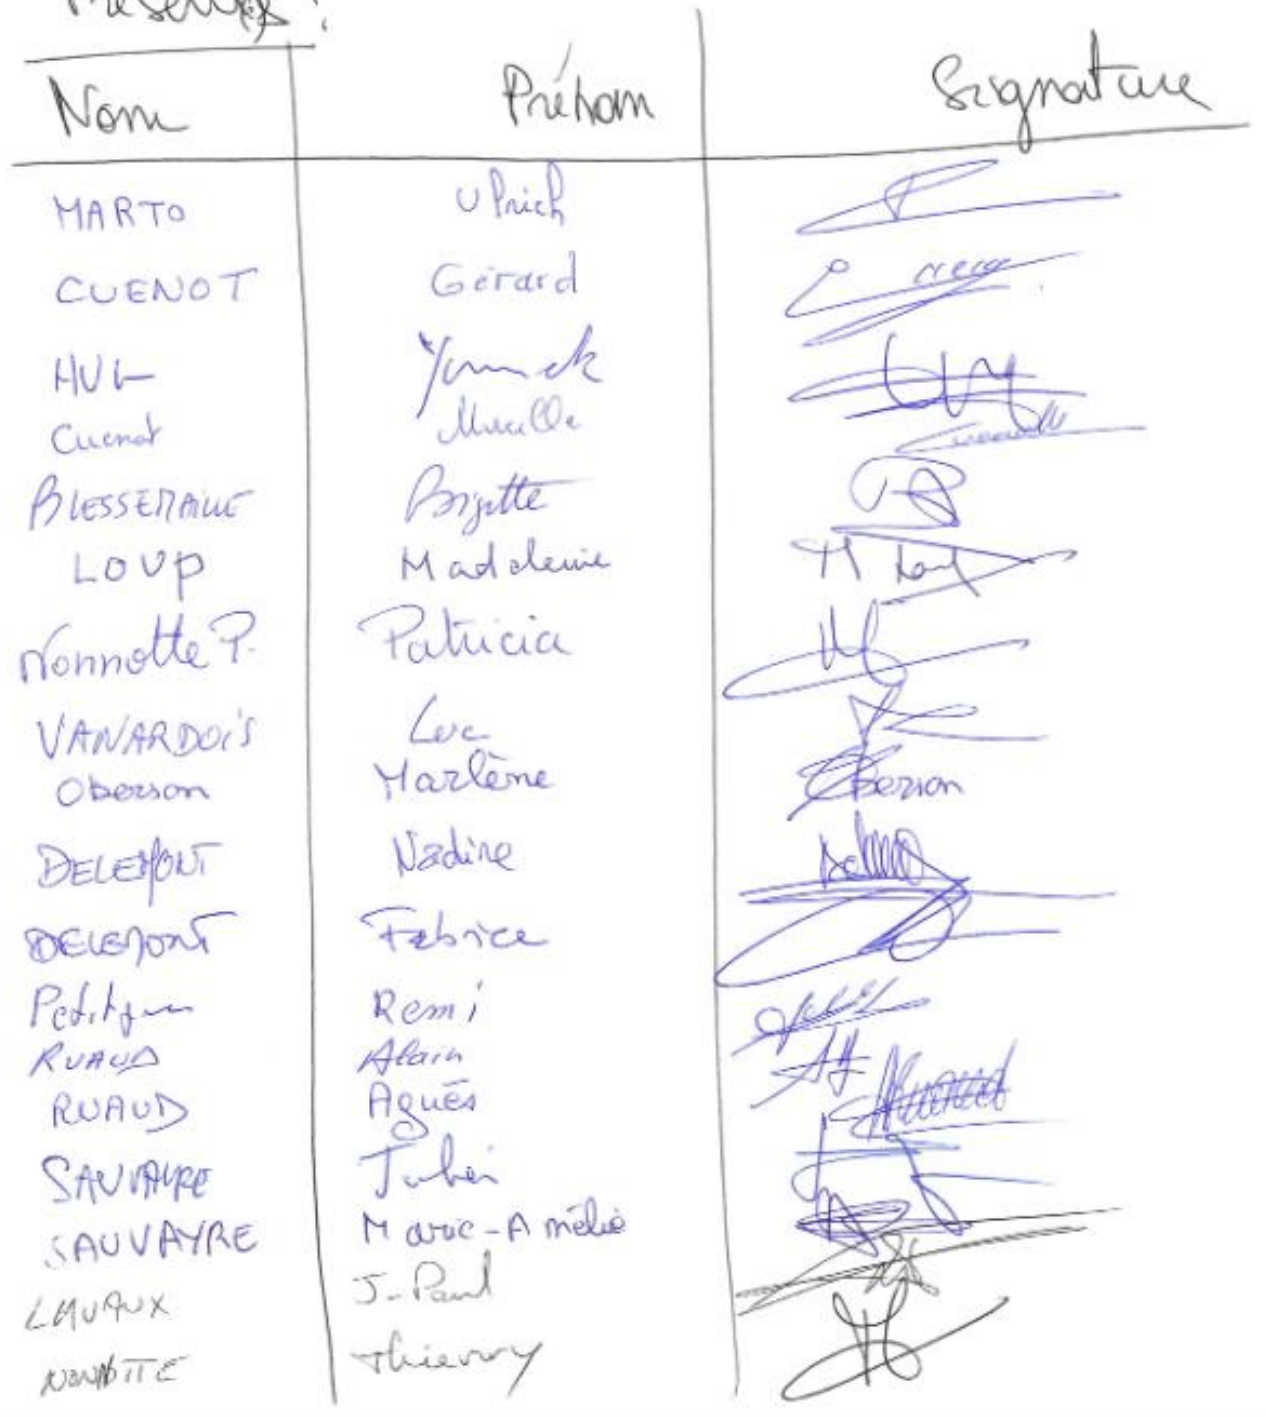 Nom Prénom Signature
MARTO Ulrich
CUENOT Gérard
HUG Yannick
Cuenot Mireille
BLESSEMAILLE Brigitte
LOUP Madeleine M Loup
Nonnotte P. Patricia
VANARDOIS Luc
Oberson Marlène Oberson
DELEMONT Nadine
DELEMONT Fabrice
Remi
RUAUD Alain
RUAUD Agnès
SAUVAYRE Julien
SAUVAYRE Marie-Amélie
LAVAUX J-Paul
NONNOTTE Thierry